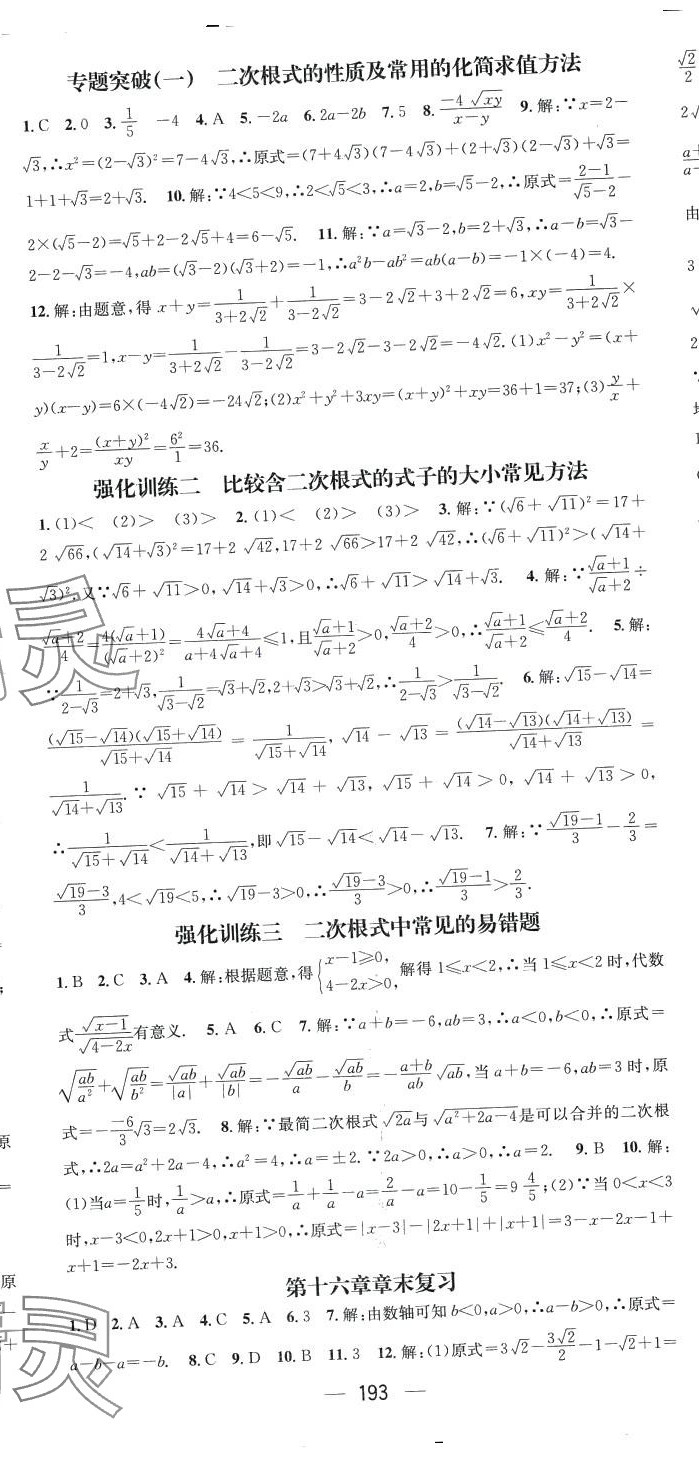 专题突破(一)　二次根式的性质及常用的化简求值方法
1.C 2.0 3.1/5 -4 4.A 5.-2a 6.2a-2b 7.5 8.(-4√xy)/(x-y) 9.解:∵x=2-
√3,∴x²=(2-√3)²=7-4√3,∴原式=(7+4√3)(7-4√3)+(2+√3)(2-√3)+√3=
1+1+√3=2+√3. 10.解:∵4<5<9,∴2<√5<3,∴a=2,b=√5-2,∴原式=(2-1)/(√5-2)-
2×(√5-2)=√5+2-2√5+4=6-√5. 11.解:∵a=√3-2,b=2+√3,∴a-b=√3-
2-2-√3=-4,ab=(√3-2)(√3+2)=-1,∴a²b-ab²=ab(a-b)=-1×(-4)=4.
12.解:由题意,得x+y=1/(3+2√2)+1/(3-2√2)=3-2√2+3+2√2=6,xy=1/(3+2√2)×
1/(3-2√2)=1,x-y=1/(3+2√2)-1/(3-2√2)=3-2√2-3-2√2=-4√2.(1)x²-y²=(x+
y)(x-y)=6×(-4√2)=-24√2;(2)x²+y²+3xy=(x+y)²+xy=36+1=37;(3)y/x+
x/y+2=(x+y)²/xy=6²/1=36.
强化训练二　比较含二次根式的式子的大小常见方法
1.(1)< (2)> (3)> 2.(1)< (2)> (3)> 3.解:∵(√6+√11)²=17+
2√66,(√14+√3)²=17+2√42,17+2√66>17+2√42,∴(√6+√11)²>(√14+
√3)².又∵√6+√11>0,√14+√3>0,∴√6+√11>√14+√3. 4.解:∵(√a+1)/(√a+2)÷
(√a+2)/4=4(√a+1)/(√a+2)²=(4√a+4)/(a+4√a+4)≤1,且(√a+1)/(√a+2)>0,(√a+2)/4>0,∴(√a+1)/(√a+2)≤(√a+2)/4. 5.解:
∵1/(2-√3)=2+√3,1/(√3-√2)=√3+√2,2+√3>√3+√2,∴1/(2-√3)>1/(√3-√2). 6.解:√15-√14=
(√15-√14)(√15+√14)/(√15+√14)=1/(√15+√14),√14-√13=(√14-√13)(√14+√13)/(√14+√13)=
1/(√14+√13).∵√15+√14>√14+√13,√15+√14>0,√14+√13>0,
∴1/(√15+√14)<1/(√14+√13),即√15-√14<√14-√13. 7.解:∵(√19-1)/3-2/3=
(√19-3)/3,4<√19<5,∴√19-3>0,∴(√19-3)/3>0,∴(√19-1)/3>2/3.
强化训练三　二次根式中常见的易错题
1.B 2.C 3.A 4.解:根据题意,得{x-1≥0, 4-2x>0,解得1≤x<2,∴当1≤x<2时,代数
式√(x-1)/√(4-2x)有意义. 5.A 6.C 7.解:∵a+b=-6,ab=3,∴a<0,b<0,∴原式=
√(ab/a²)+√(ab/b²)=√ab/|a|+√ab/|b|=-√ab/a-√ab/b=-(a+b)/ab √ab,当a+b=-6,ab=3时,原
式=-(-6/3)√3=2√3. 8.解:∵最简二次根式√2a与√(a²+2a-4)是可以合并的二次根
式,∴2a=a²+2a-4,∴a²=4,∴a=±2.∵2a>0,∴a>0,∴a=2. 9.B 10.解:
(1)当a=1/5时,1/a>a,∴原式=1/a+1/a-a=2/a-a=10-1/5=9 4/5;(2)∵当0<x<3
时,x-3<0,2x+1>0,x+1>0,∴原式=|x-3|-|2x+1|+|x+1|=3-x-2x-1+
x+1=-2x+3.
第十六章章末复习
1.D 2.A 3.A 4.C 5.A 6.3 7.解:由数轴可知b<0,a>0,∴a-b>0,∴原式=
a-b-a=-b. 8.C 9.D 10.B 11.3 12.解:(1)原式=3√2-3√2/2-1-√2+1=
— 193 —